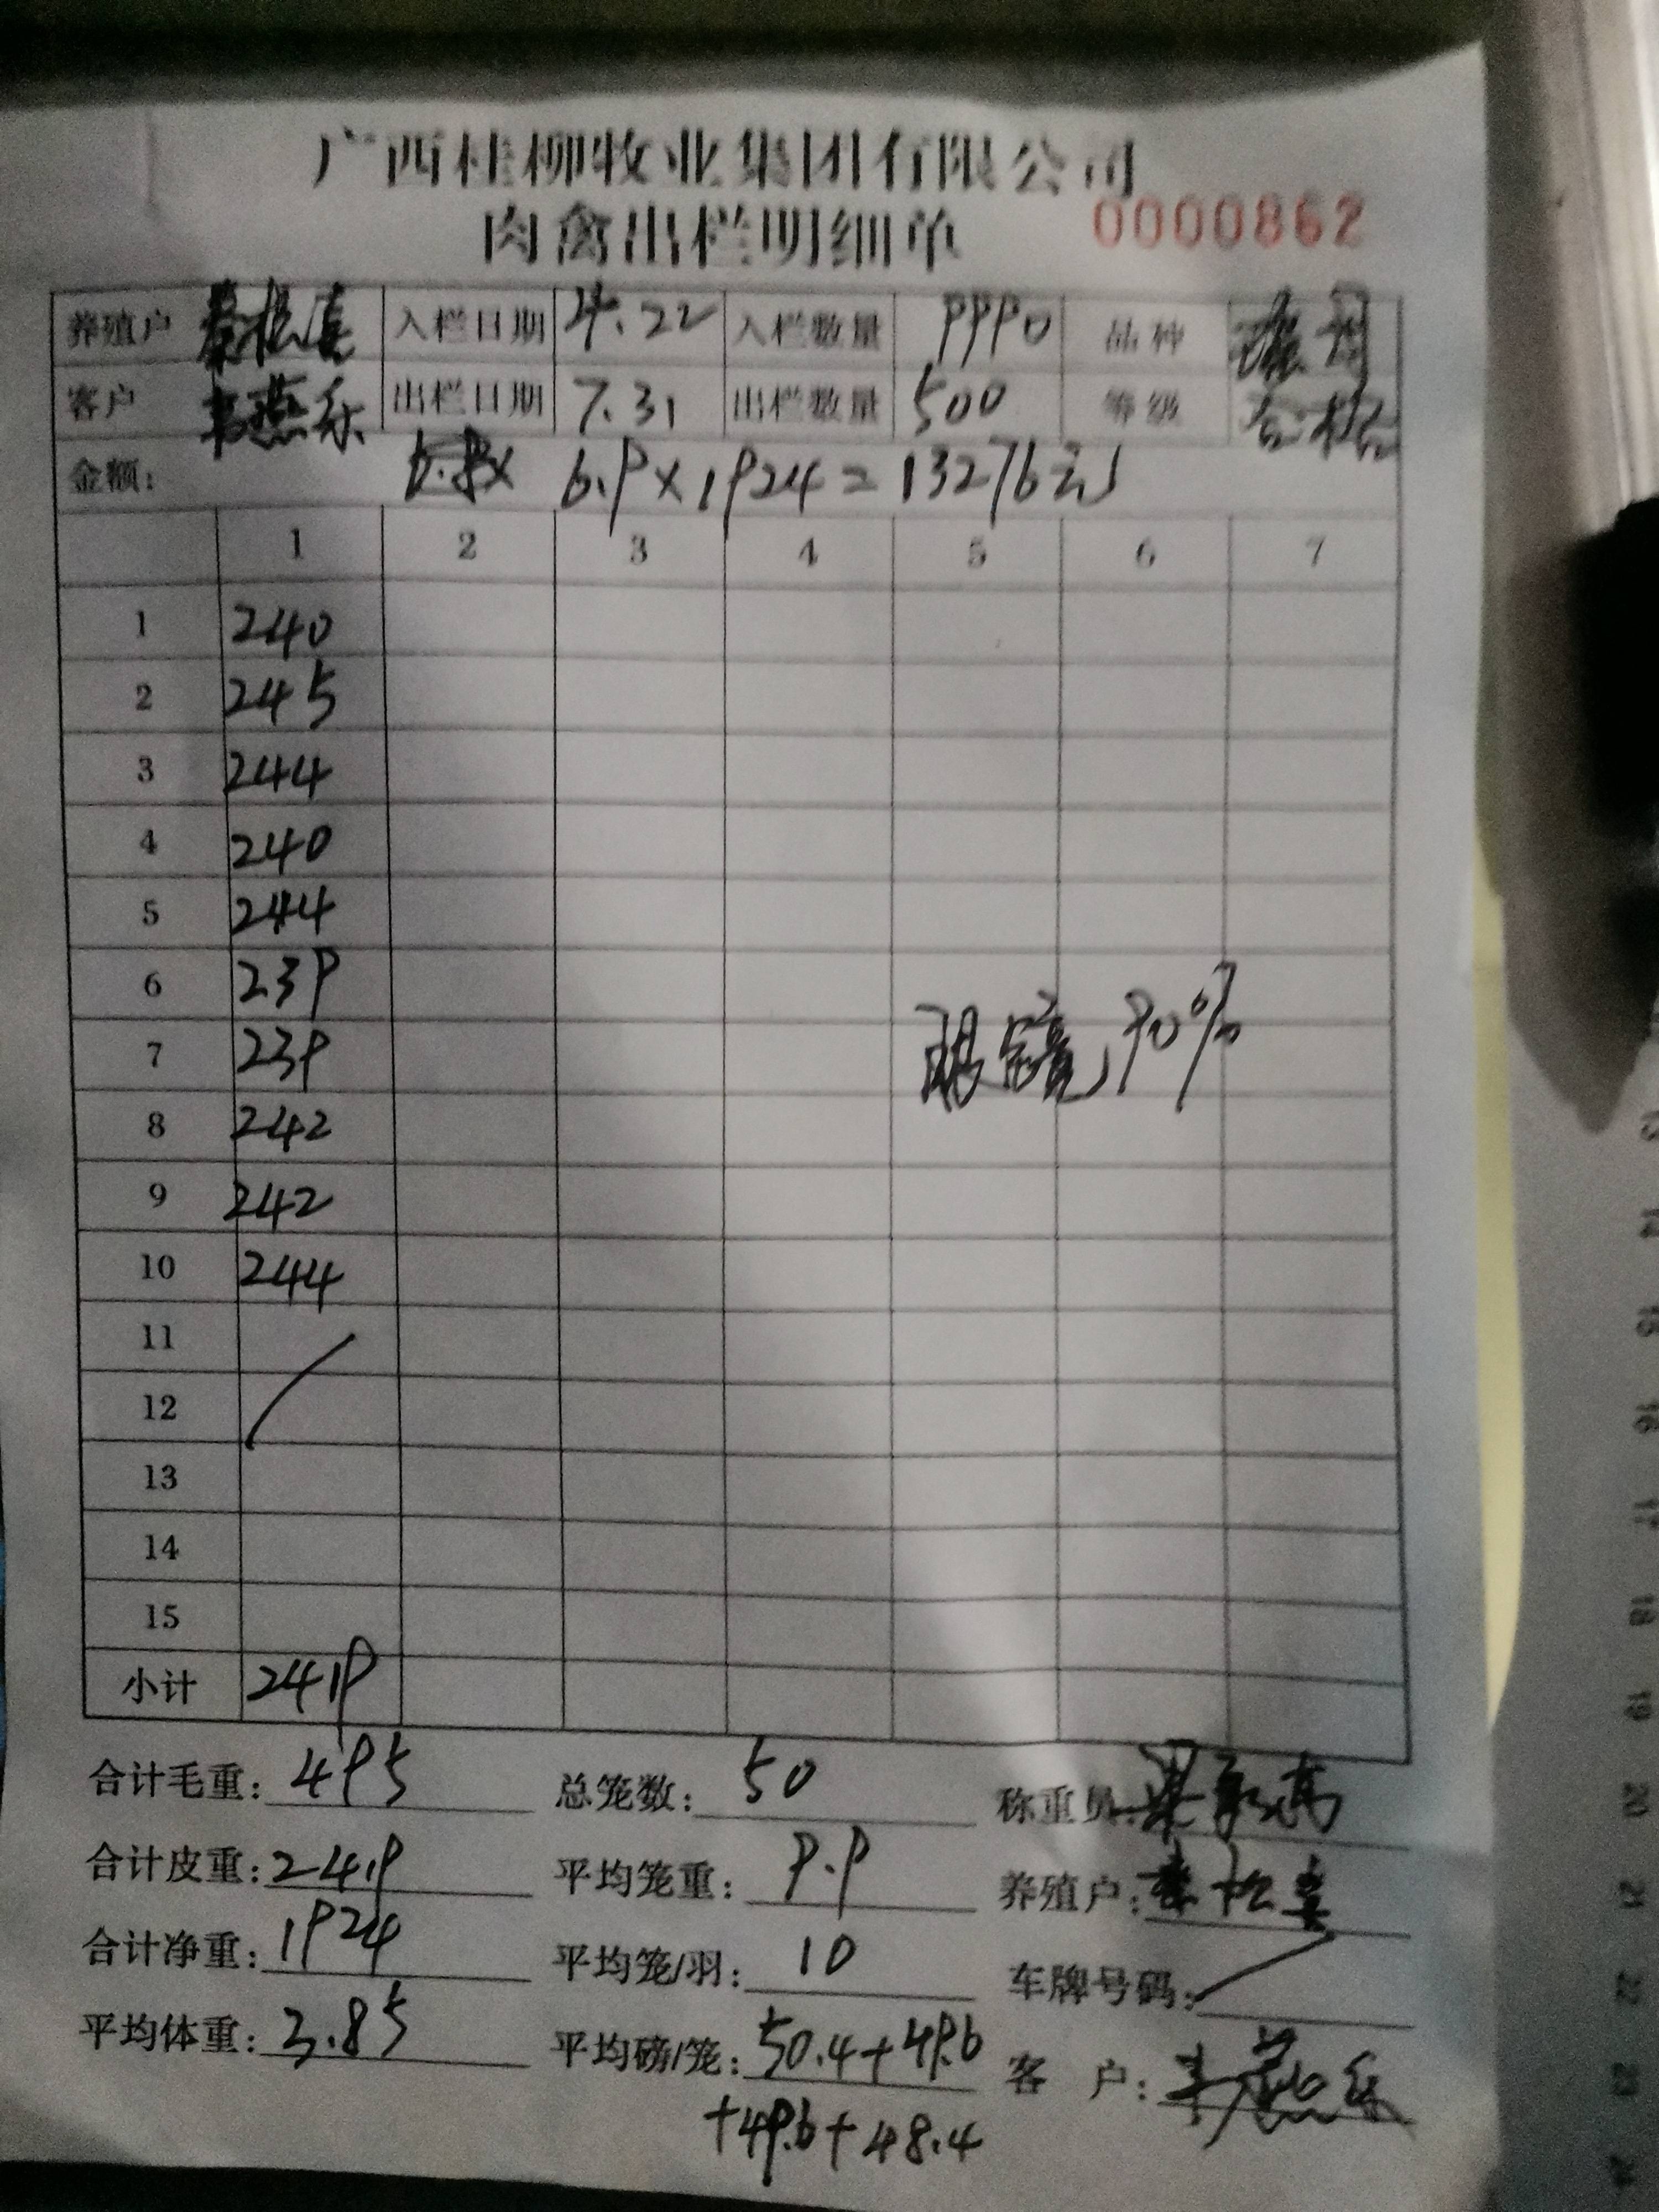 广西桂柳牧业集团有限公司
肉禽出栏明细单 0000862
养殖户 入栏日期 4.22 入栏数量 9990 品种
客户 韦燕乐 出栏日期 7.31 出栏数量 500 等级 合格
金额: 6.9×1924=13276元
1 2 3 4 5 6 7
1 240
2 245
3 244
4 240
5 244
6 239
7 239
眼镜 90%
8 242
9 242
10 244
11
12
13
14
15
小计 2419
合计毛重: 495 总笼数: 50 称重员:
合计皮重: 2419 平均笼重: 9.9 养殖户:
合计净重: 1924 平均笼/羽: 10 车牌号码:
平均体重: 3.85 平均磅/笼: 50.4+49.6 客 户: 韦燕乐
+49.6+48.4
13
14
15
16
17
18
19
20
21
22
23
24